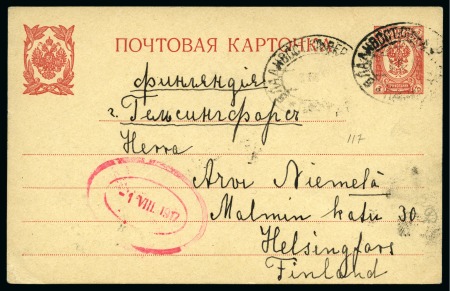 ПОЧТОВАЯ КАРТОЧКА
Финляндія
г. Гельсингфорсъ
Herra
Arvi Niemelä
Malmin katu 30
Helsingfors
Finland
117
-1 VIII. 1917